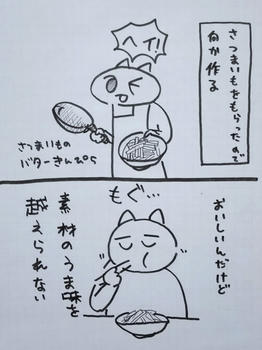 さつまいもをもらったので
何か作る
ヘイ!
さつまいもの
バターきんぴら
おいしいんだけど
もぐ…
素材のうま味を
越えられない